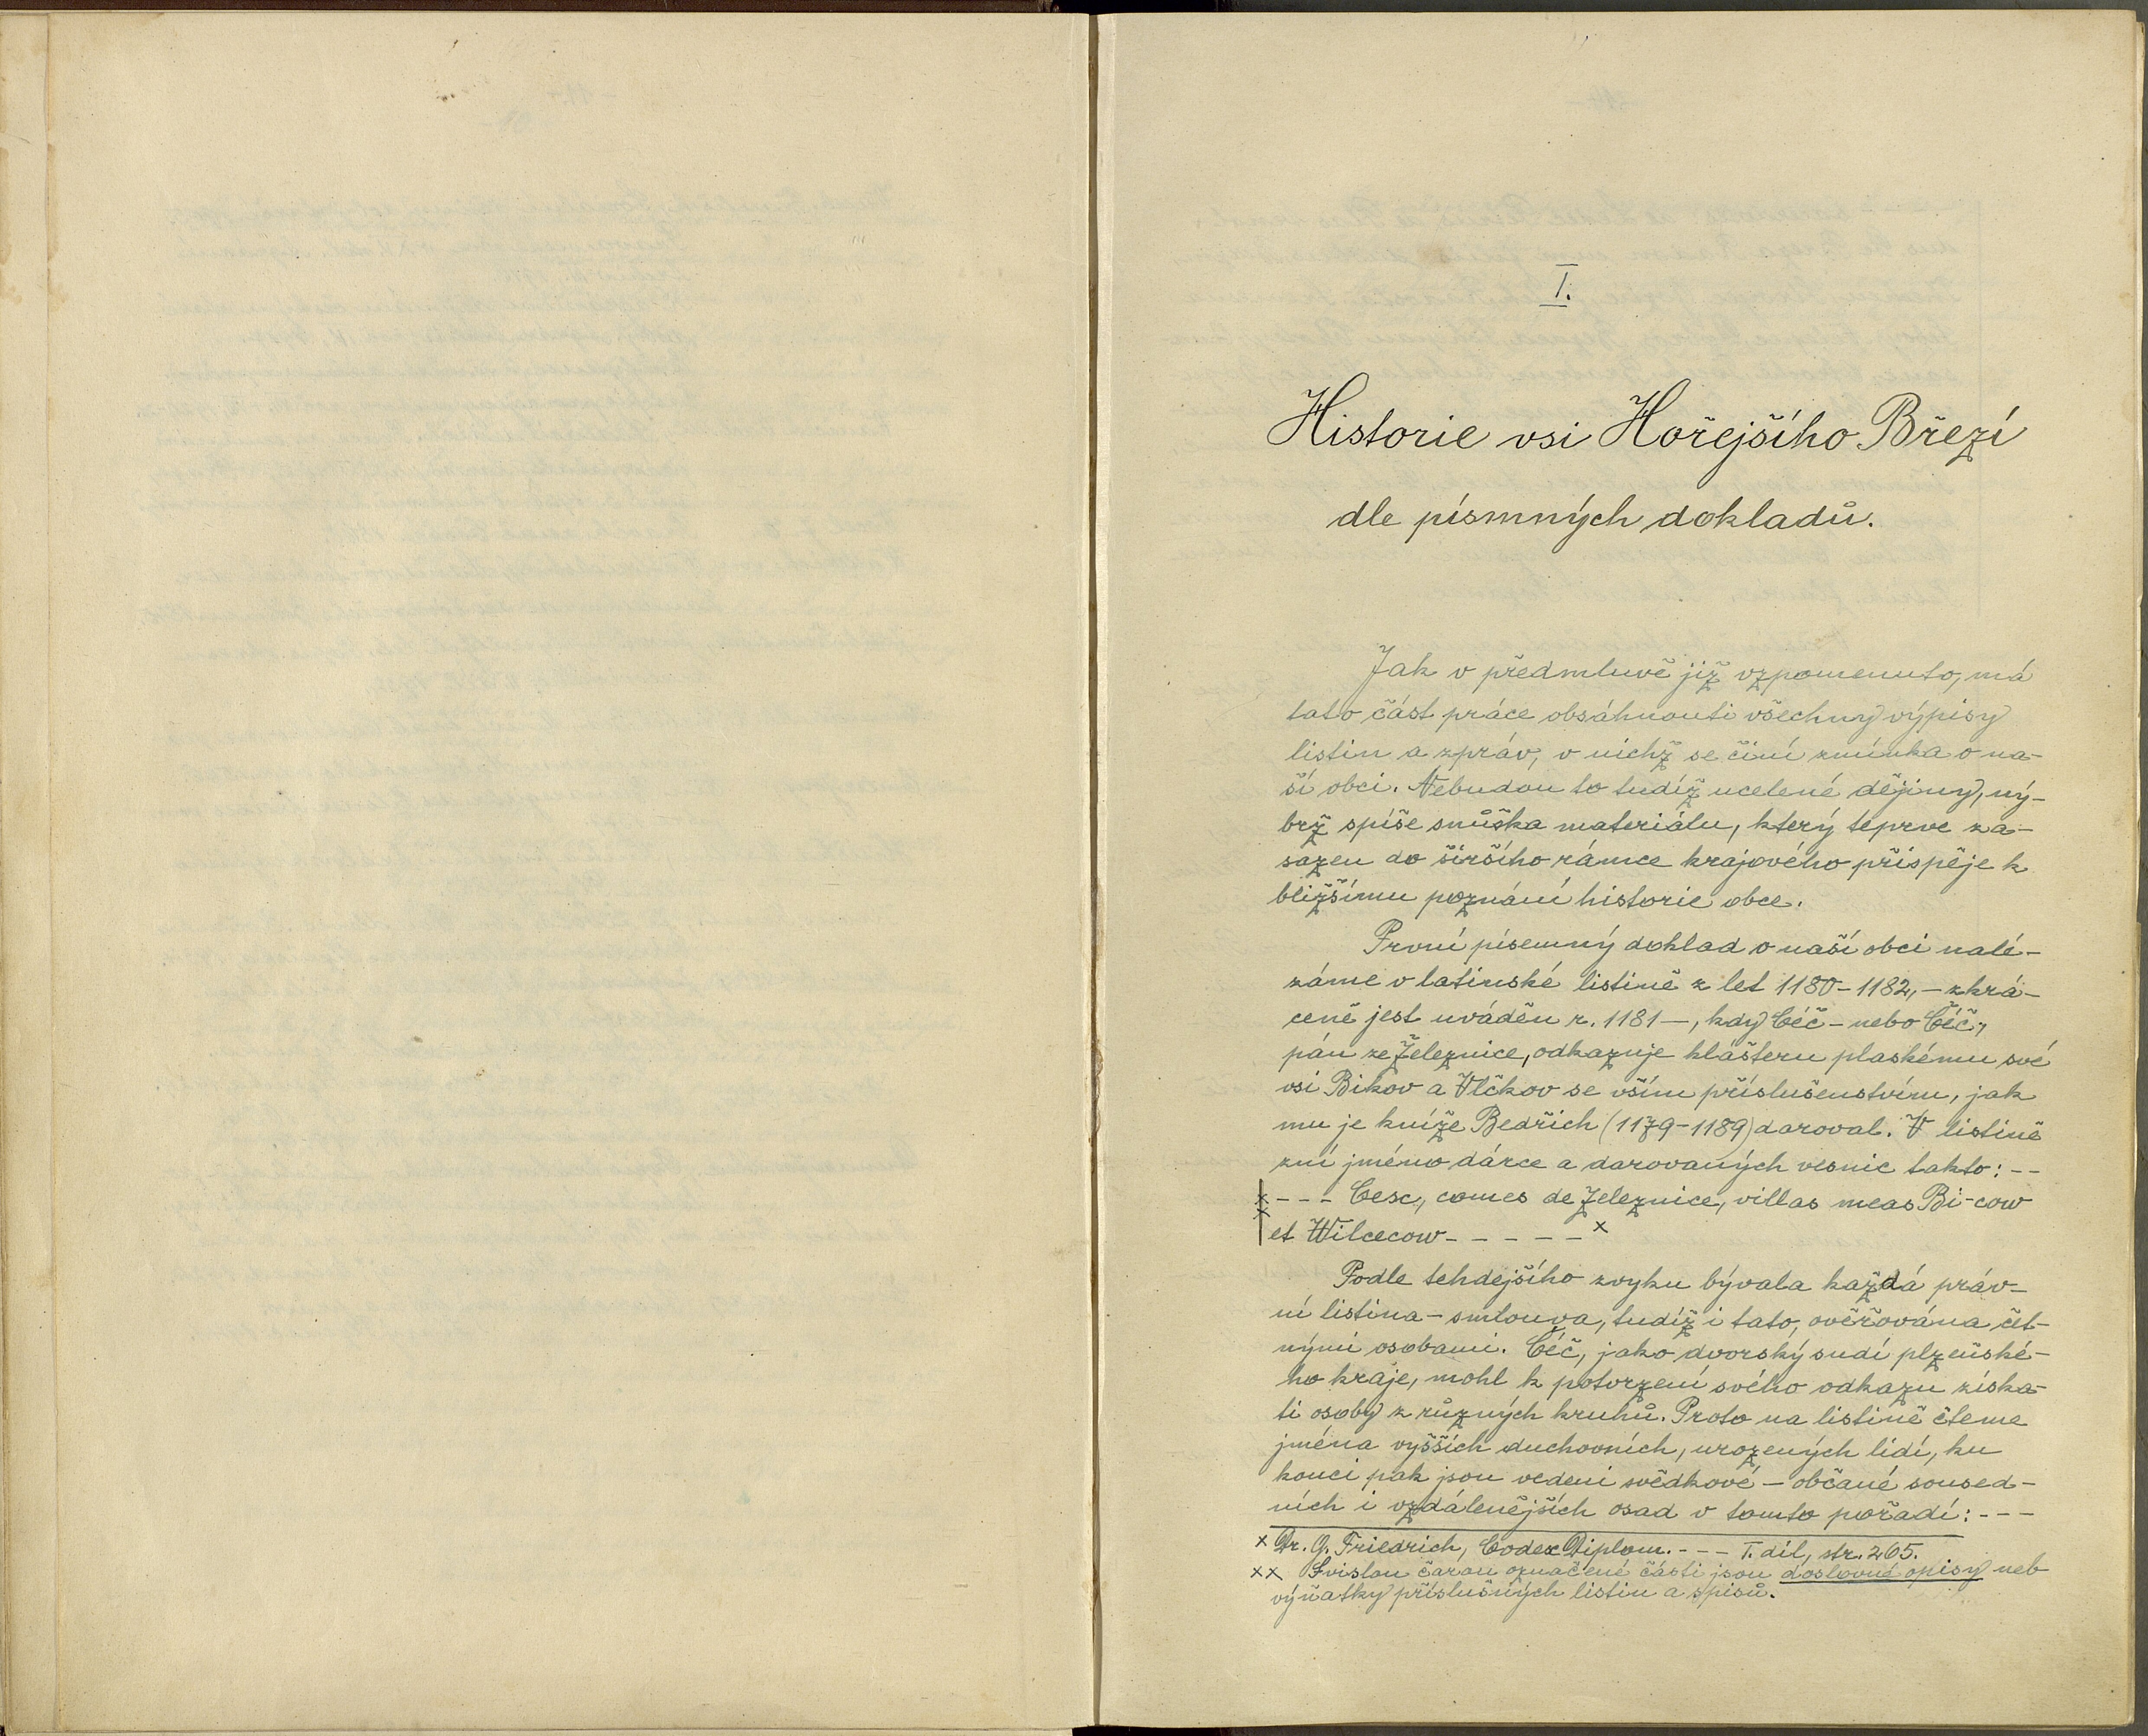 I.
Historie vsi Hořejšího Březí
dle písmných dokladů.
Jak v předmluvě již vzpomenuto, má
tato část práce obsáhnouti všechny výpisy
listin a zpráv, v nichž se činí zmínka o na-
ší obci. Nebudou to tudíž ucelené dějiny, ný-
brž spíše snůška materiálu, který teprve za-
sazen do širšího rámce krajového přispěje k
bližšímu poznání historie obce.
První písemný doklad o naší obci nalé-
záme v latinské listině z let 1180-1182, - zkrá-
ceně jest uváděn r. 1181 -, kdy Céč - nebo Čéč,
pán ze Železnice, odkazuje klášteru plaskému své
vsi Bikov a Vlčkov se vším příslušenstvím, jak
mu je kníže Bedřich (1179-1189) daroval. V listině
zní jméno dárce a darovaných vesnic takto: --
x x --- Cesc, comes de Železnice, villas meas Bi-cow
et Wilcecow - - - - - x
Podle tehdejšího zvyku bývala každá práv-
ní listina - smlouva, tudíž i tato, ověřována čet-
nými osobami. Čéč, jako dvorský sudí plzeňské-
ho kraje, mohl k potvrzení svého odkazu získa-
ti osoby z různých kruhů. Proto na listině čteme
jména vyšších duchovních, urozených lidí, ku
konci pak jsou vedeni svědkové - občané soused-
ních i vzdálenějších osad v tomto pořadí: ---
x Dr. G. Friedrich, Codex Diplom. --- I. díl, str. 265.
xx Svislou čarou označené části jsou doslovné opisy neb
výňatky příslušných listin a spisů.